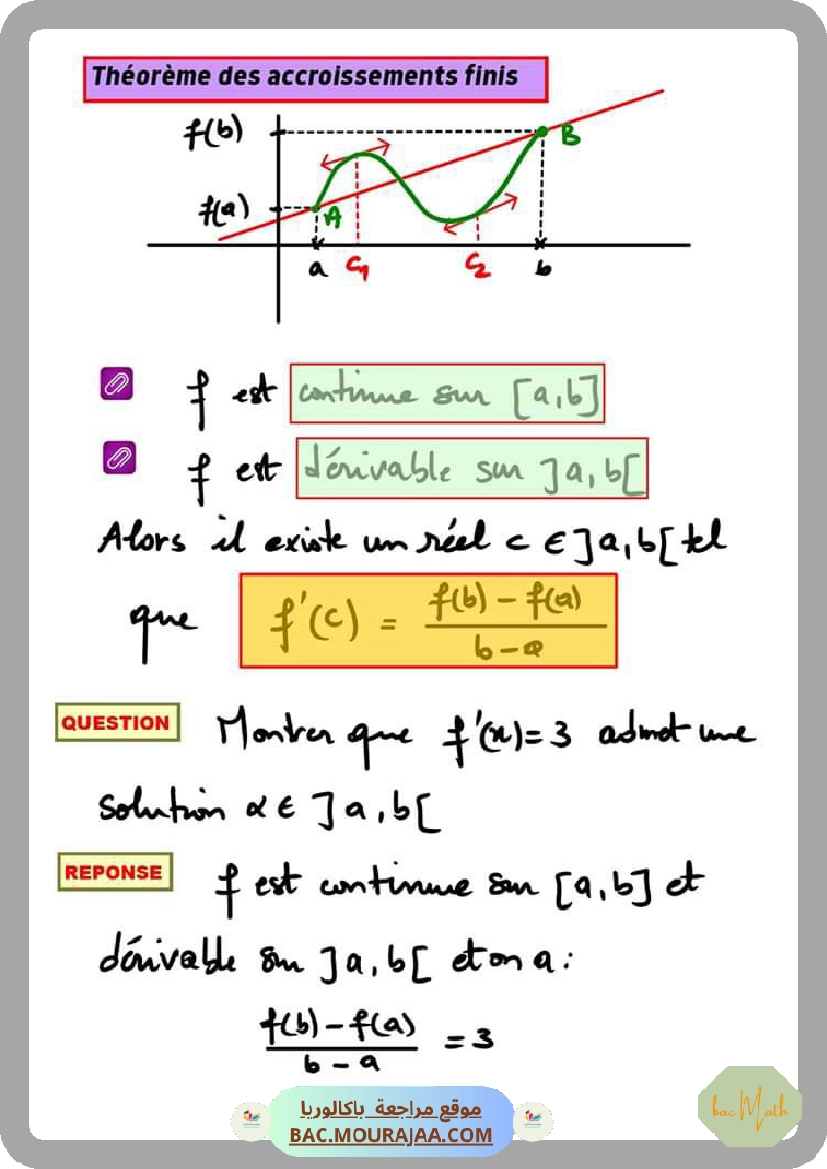 Théorème des accroissements finis
f(b)
B
f(a)
A
a c₁ c₂ b
f est continue sur [a,b]
f est dérivable sur ]a,b[
Alors il existe un réel c ∈ ]a,b[ tel
que f'(c) = f(b) - f(a) / b - a
QUESTION Montrer que f'(x)=3 admet une
solution α ∈ ]a,b[
REPONSE f est continue sur [a,b] et
dérivable sur ]a,b[ et on a :
f(b) - f(a) / b - a = 3
موقع مراجعة باكالوريا
BAC.MOURAJAA.COM
bac Math